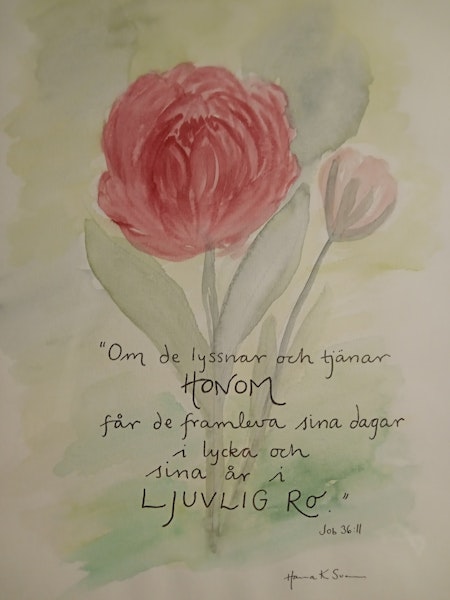 "Om de lyssnar och tjänar
HONOM
får de framleva sina dagar
i lycka och
sina år i
LJUVLIG RO."
Job 36:11
K